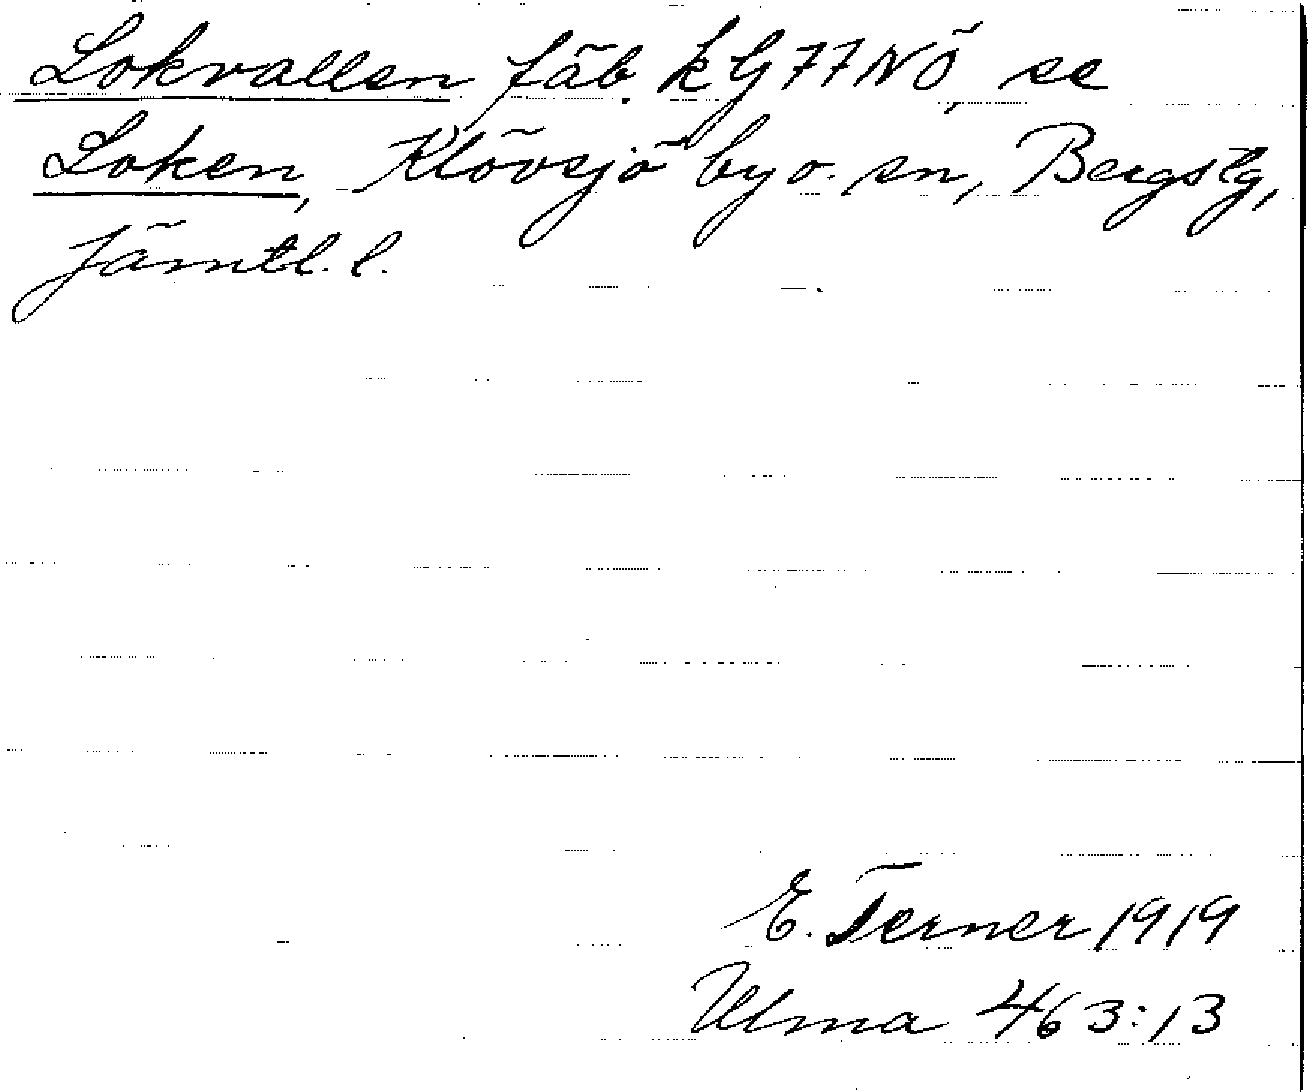 Lokvallen fäb. kG 77 NÖ, se
Loken, Klövsjö by o. sn, Bergs tg,
Jämtl. l.
E. Terner 1919
Ulma 463:13